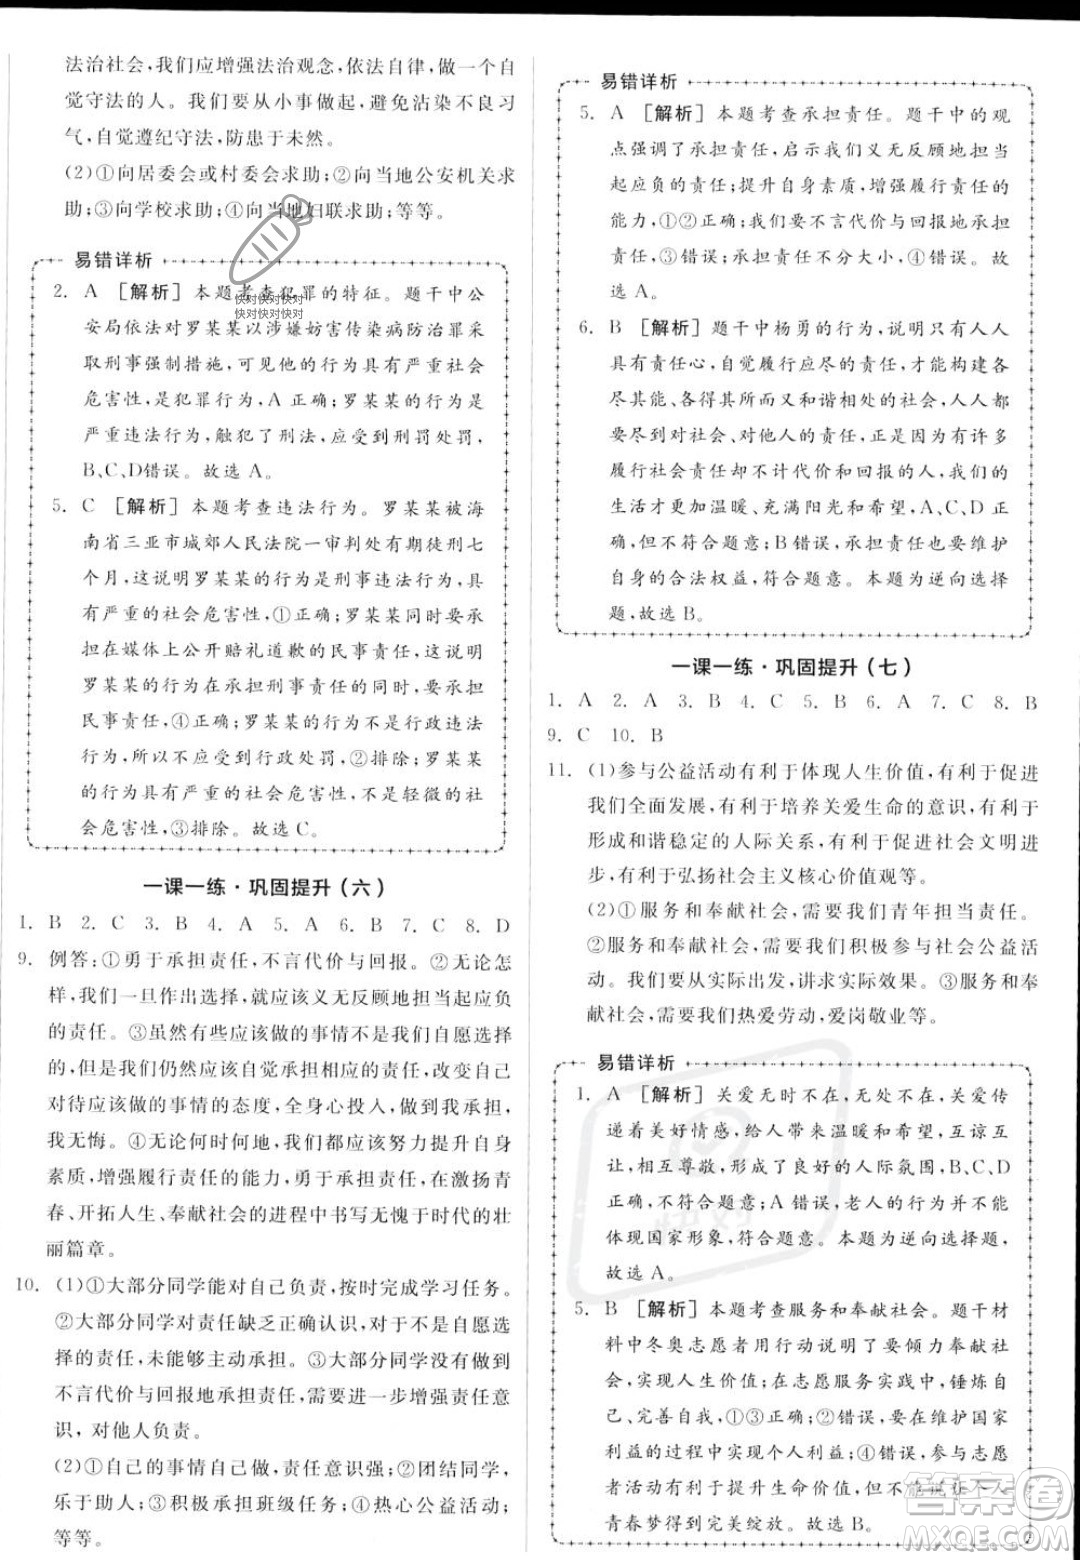 法治社会,我们应增强法治观念,依法自律,做一个自
觉守法的人。我们要从小事做起,避免沾染不良习
气,自觉遵纪守法,防患于未然。
(2)①向居委会或村委会求助;②向当地公安机关求
助;③向学校求助;④向当地妇联求助;等等。
易错详析
2. A [解析]本题考查犯罪的特征。题干中公
安局依法对罗某某以涉嫌妨害传染病防治罪采
取刑事强制措施,可见他的行为具有严重社会
危害性,是犯罪行为,A正确;罗某某的行为是
严重违法行为,触犯了刑法,应受到刑罚处罚,
B、C、D错误。故选A。
5. C [解析]本题考查违法行为。罗某某被海
南省三亚市城郊人民法院一审判处有期徒刑七
个月,这说明罗某某的行为是刑事违法行为,具
有严重的社会危害性,①正确;罗某某同时被要
求在媒体上公开赔礼道歉的民事责任,这说明
罗某某的行为在承担刑事责任的同时,要承担
民事责任,④正确;罗某某的行为不是行政违法
行为,所以不应受到行政处罚,②排除;罗某某
的行为具有严重社会危害性,不是轻微的社
会危害性,③排除。故选C。
一课一练·巩固提升(六)
1. B 2. C 3. B 4. A 5. A 6. B 7. C 8. D
9. 例答:①勇于承担责任,不言代价与回报。②无论怎
样,我们一旦作出选择,就应该义无反顾地担当起应负
的责任。③虽然有些应该做的事情不是我们自愿选择
的,但是我们仍然应该自觉承担相应的责任,改变自己
对待应该做的事情的态度,全身心投入,做到我承担,
我无悔。④无论何时何地,我们都应该努力提升自身
素质,增强履行责任的能力,勇于承担责任,在激扬青
春、开拓人生、奉献社会的进程中书写无愧于时代的壮
丽篇章。
10. (1)①大部分同学能对自己负责,按时完成学习任务。
②大部分同学对责任缺乏正确认识,对不是自愿选
择的责任,未能够主动承担。③大部分同学没有做到
不言代价与回报地承担责任,需要进一步增强责任意
识,对他人负责。
(2)①自己的事情自己做,责任意识强;②团结同学,
乐于助人;③积极承担班级任务;④热心公益活动;
等等。
易错详析
5. A [解析]本题考查承担责任。题干中的观
点强调了承担责任,启示我们义无反顾地担当
起应负的责任;提升自身素质,增强履行责任的
能力,①②正确;我们要不言代价与回报地承担
责任,③错误;我们承担责任不分大小,④错误。故
选A。
6. B [解析]题干中杨勇的行为,说明只有人人
具有责任心,自觉履行应尽的责任,才能构建各
尽其能、各得其所而又和谐相处的社会,人人都
要尽到对社会、对他人的责任,正是因为有许多
履行社会责任却不计代价和回报的人,我们的
生活才更加温暖、充满阳光和希望,A、C、D正
确,但不符合题意;B错误,我们也要维护
自身的合法权益,符合题意。本题为逆向选择
题,故选B。
一课一练·巩固提升(七)
1. A 2. A 3. B 4. C 5. B 6. A 7. C 8. B
9. C 10. B
11. (1)参与公益活动有利于体现人生价值,有利于促进
我们全面发展,有利于培养关爱生命的意识,有利于
形成和谐稳定的人际关系,有利于促进社会文明进
步,有利于弘扬社会主义核心价值观等。
(2)①服务和奉献社会,需要我们青年担当责任。
②服务和奉献社会,需要我们积极参与社会公益活
动。我们要从实际出发,讲求实际效果。③服务和奉
献社会,需要我们热爱劳动,爱岗敬业等。
易错详析
1. A [解析]关爱无时不在,无处不在,关爱传
递着美好情感,给人带来温暖和希望,互谅互
让,相互尊敬,形成了良好的人际氛围,B、C、D
正确,不符合题意;A错误,老人的行为没有
体现国家形象,符合题意。本题为逆向选择题,
故选A。
5. B [解析]本题考查服务和奉献社会。题干材
料中冬奥志愿者用行动说明了要倾力奉献社
会,实现人生价值;在志愿服务实践中,锤炼自
己、完善自我,①③正确;②错误,要在维护国家
利益的过程中实现个人利益;④错误,参与志愿
者活动有利于提升生命价值,但不能说让
青春梦得到完美绽放。故选B。
快对快对快对
快对快对快对
快对
答案卷
MXQE.COM